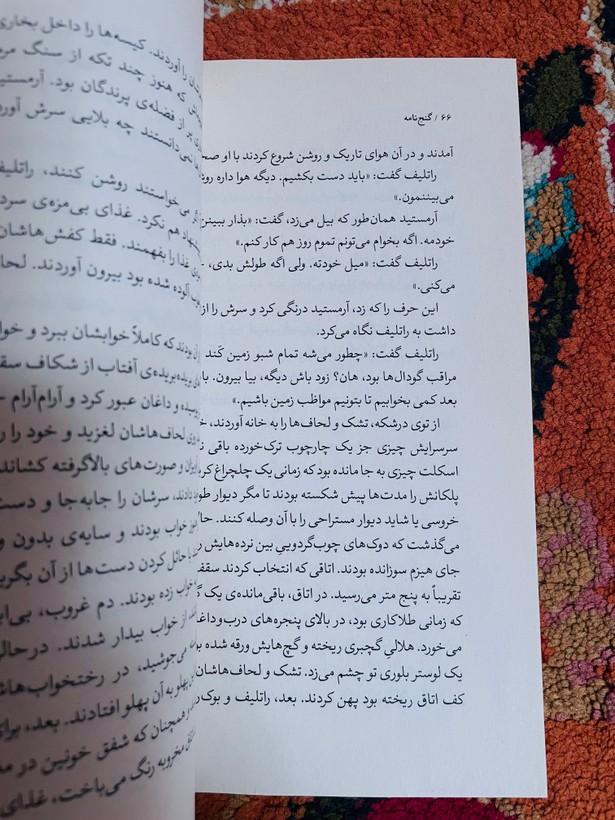 ۶۶ / گنج‌نامه
آمدند و در آن هوای تاریک و روشن شروع کردند با او
راتلیف گفت: «باید دست بکشیم. دیگه هوا داره
می‌بیننمون.»
آرمستید همان‌طور که بیل می‌زد، گفت: «بذار ببینن
خودمه. اگه بخوام می‌تونم تموم روز هم کار کنم.»
راتلیف گفت: «میل خودته. ولی اگه طولش بدی،
می‌کنی.»
این حرف را که زد، آرمستید درنگی کرد و سرش را از
داشت به راتلیف نگاه می‌کرد.
راتلیف گفت: «چطور می‌شه تمام شبو زمین کَند
مراقب گودال‌ها بود، هان؟ زود باش دیگه، بیا بیرون.
بعد کمی بخوابیم تا بتونیم مواظب زمین باشیم.»
از توی درشکه، تشک و لحاف‌ها را به خانه آوردند،
سرسرایش چیزی جز یک چارچوب ترک‌خورده باقی
اسکلت چیزی به جا مانده بود که زمانی یک چلچراغ
پلکانش را مدت‌ها پیش شکسته بودند تا مگر دیوار
خروسی یا شاید دیوار مستراحی را با آن وصله کنند.
می‌گذشت که دوک‌های چوب‌گردوییِ بین نرده‌هایش
جای هیزم سوزانده بودند. اتاقی که انتخاب کردند
تقریباً به پنج متر می‌رسید. در اتاق، باقی‌مانده‌ی یک
که زمانی طلاکاری بود، در بالای پنجره‌های درب‌وداغ
می‌خورد. هلالیِ گچبری ریخته و گچ‌هایش ورقه شده
یک لوستر بلوری تو چشم می‌زد. تشک و لحاف‌هاشان
کف اتاق ریخته بود پهن کردند. بعد، راتلیف و بوک
را آوردند. کیسه‌ها را داخل بخاری
که هنوز چند تکه از سنگ
از فضله‌ی پرندگان بود.
دانستند چه بلایی سرش
می‌خواستند روشن کنند،
هم نکرد. غذای بی‌مزه‌ی
غذا را بفهمند. فقط کفش‌هاشان
آلوده شده بود بیرون آوردند.
بودند که کاملاً خوابشان ببرد و
بریده‌ی آفتاب از شکاف
و داغان عبور کرد و آرام‌آرام
روی لحاف‌هاشان لغزید و خود را
و صورت‌های بالاگرفته
دادند، سرشان را جابه‌جا و
خواب بودند و سایه‌ی بدون
با حائل کردن دست‌ها از آن
خواب زده بودند. دم غروب،
از خواب بیدار شدند.
می‌جوشید، در رختخواب‌هاشان
پهلو به آن پهلو افتادند. بعد، برای
همچنان که شفق خونین در
مخروبه رنگ می‌باخت، غذای